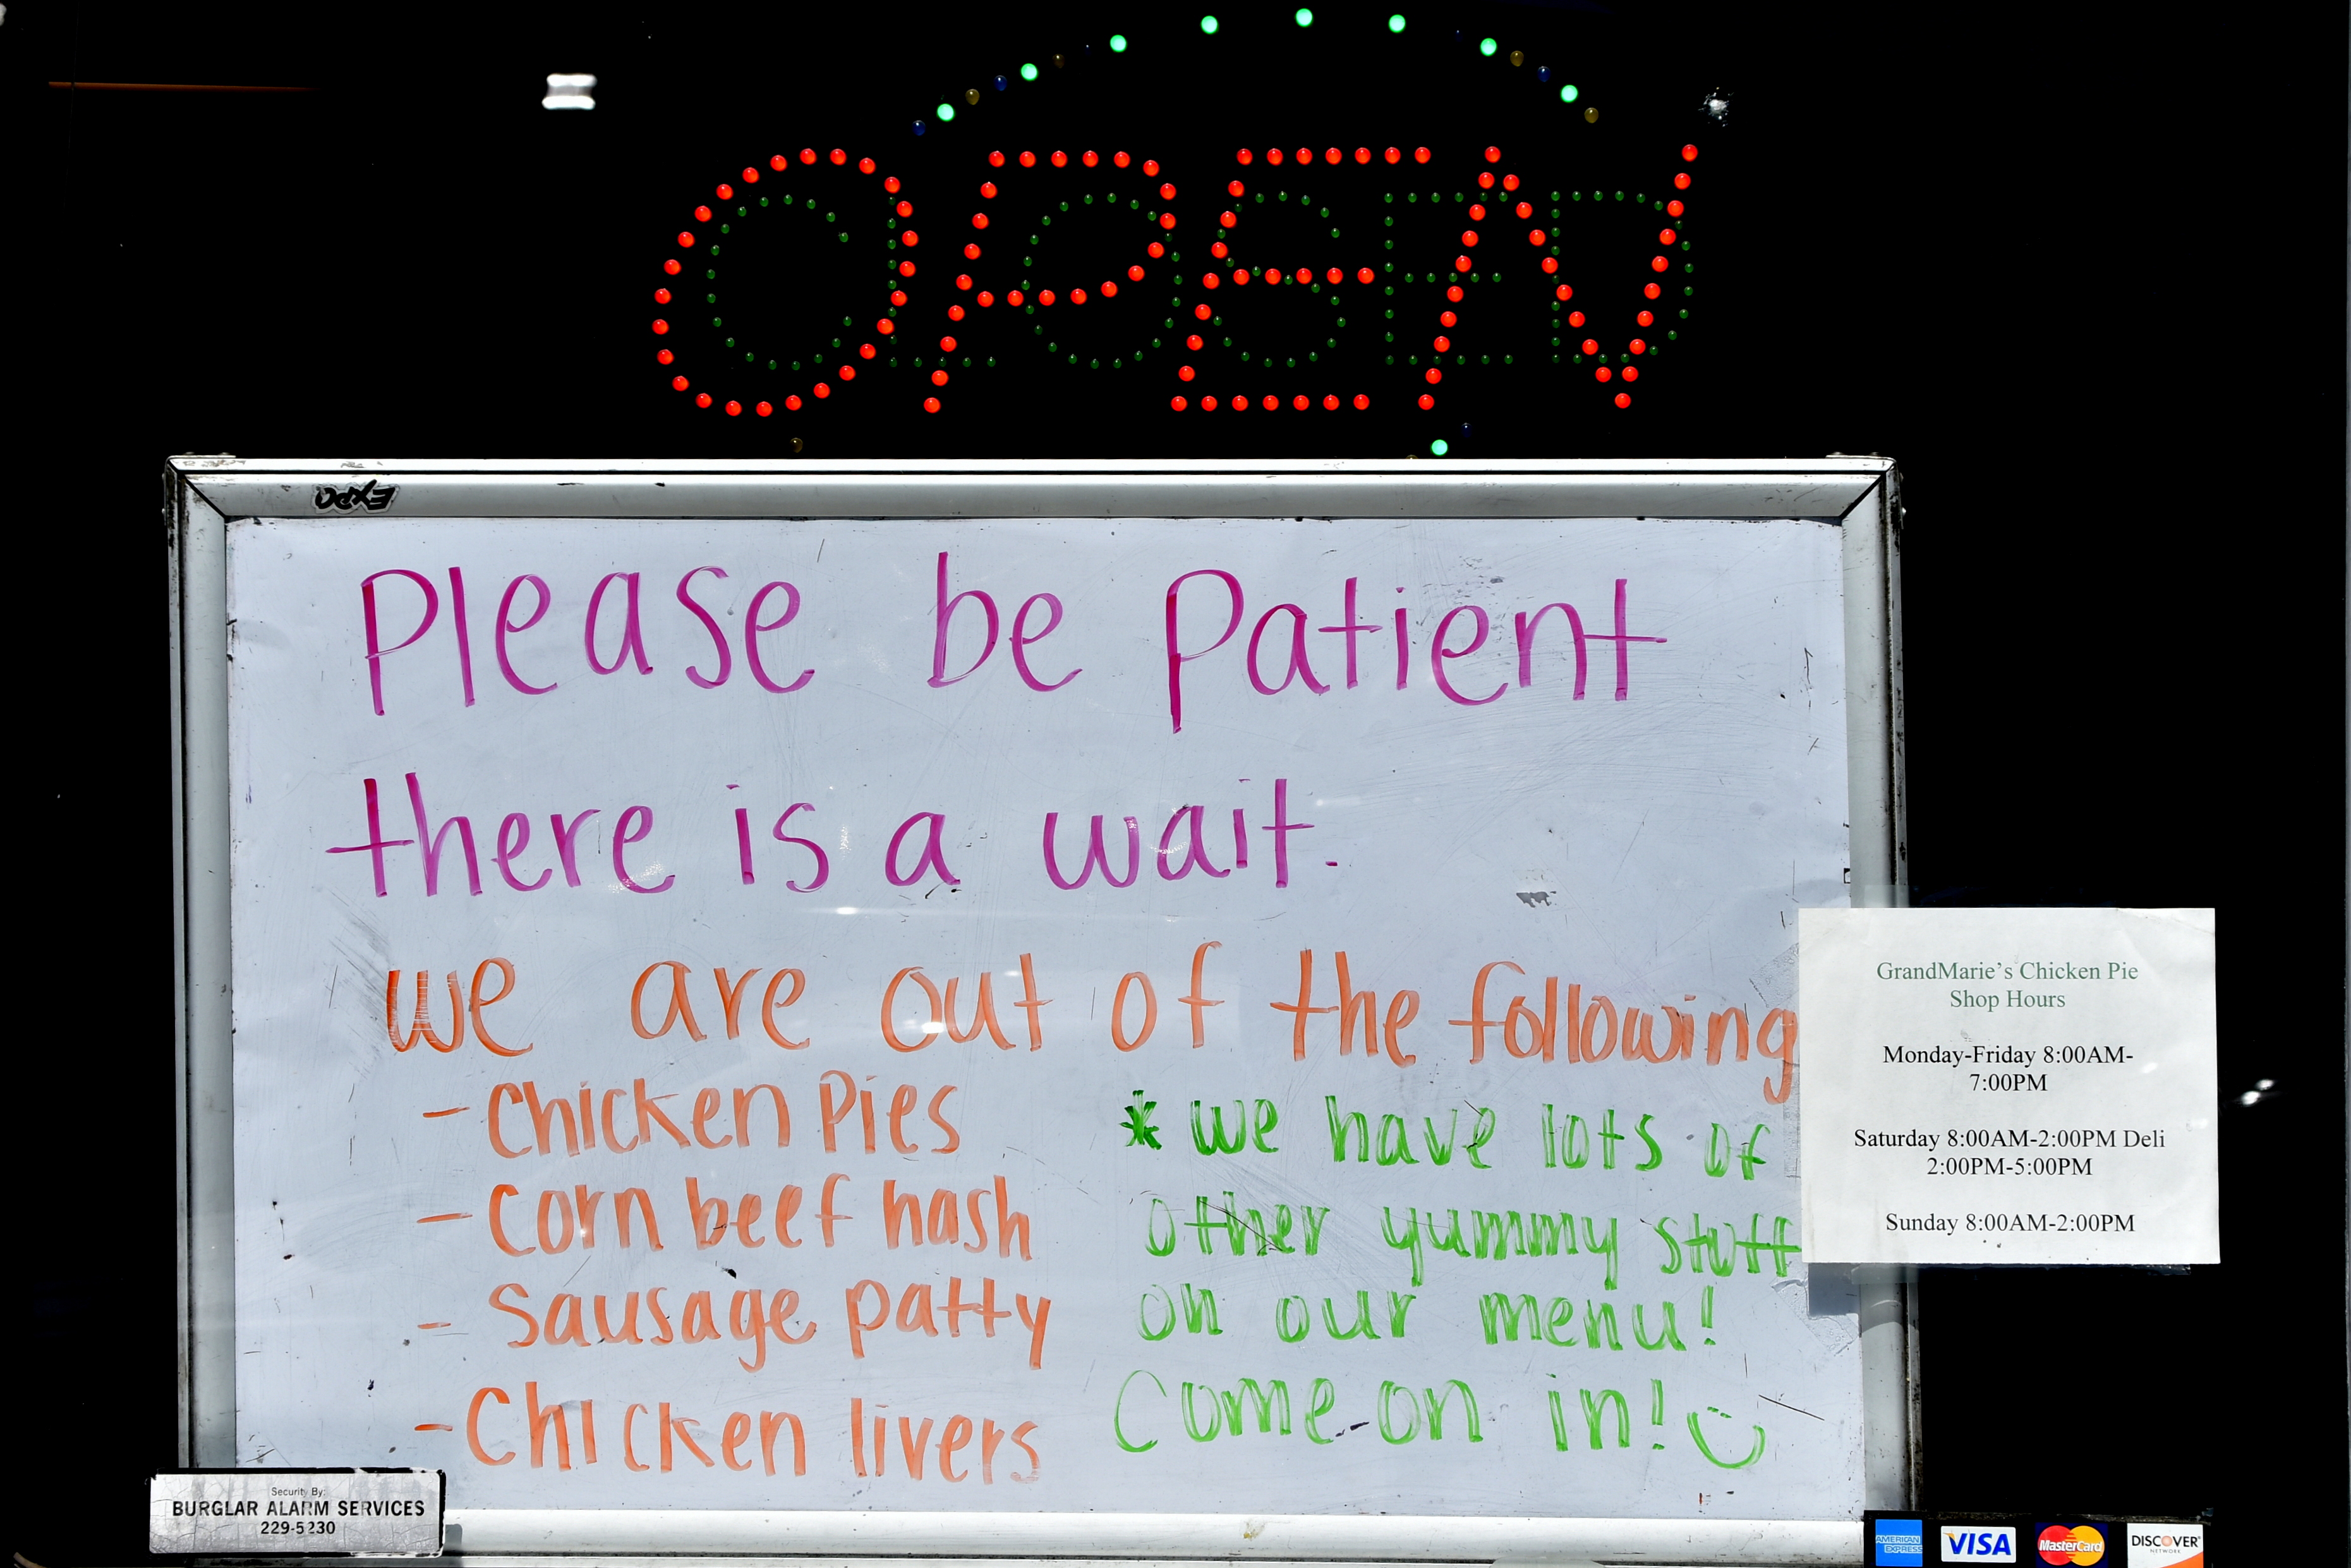 OPEN
EXPO
Please be Patient
there is a wait.
we are out of the following
- Chicken Pies
- Corn beef hash
- Sausage patty
- Chicken livers
* we have lots of
other yummy stuff
on our menu!
Come on in!
GrandMarie's Chicken Pie
Shop Hours
Monday-Friday 8:00AM-
7:00PM
Saturday 8:00AM-2:00PM Deli
2:00PM-5:00PM
Sunday 8:00AM-2:00PM
Security By:
BURGLAR ALARM SERVICES
229-5230
AMERICAN EXPRESS
VISA
MasterCard
DISCOVER
NETWORK